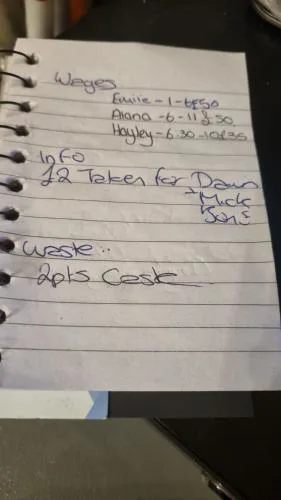 Wages
Emilie - 1 - 6 £50
Alana - 6 - 11 £50
Hayley - 6.30 - 10 £35
Info
£2 Taken for Dawn
+ Mick
Waste..
2pts Cask